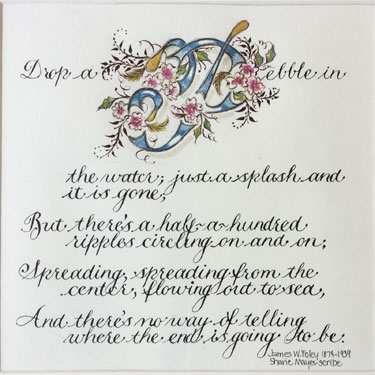 Drop a Pebble in
the water; just a splash and
it is gone;
But there's a half-a-hundred
ripples circling on and on;
Spreading, spreading from the
center, flowing out to sea,
And there's no way of telling
where the end is going to be.
James W. Foley 1874-1939
Sharie Mayes-scribe